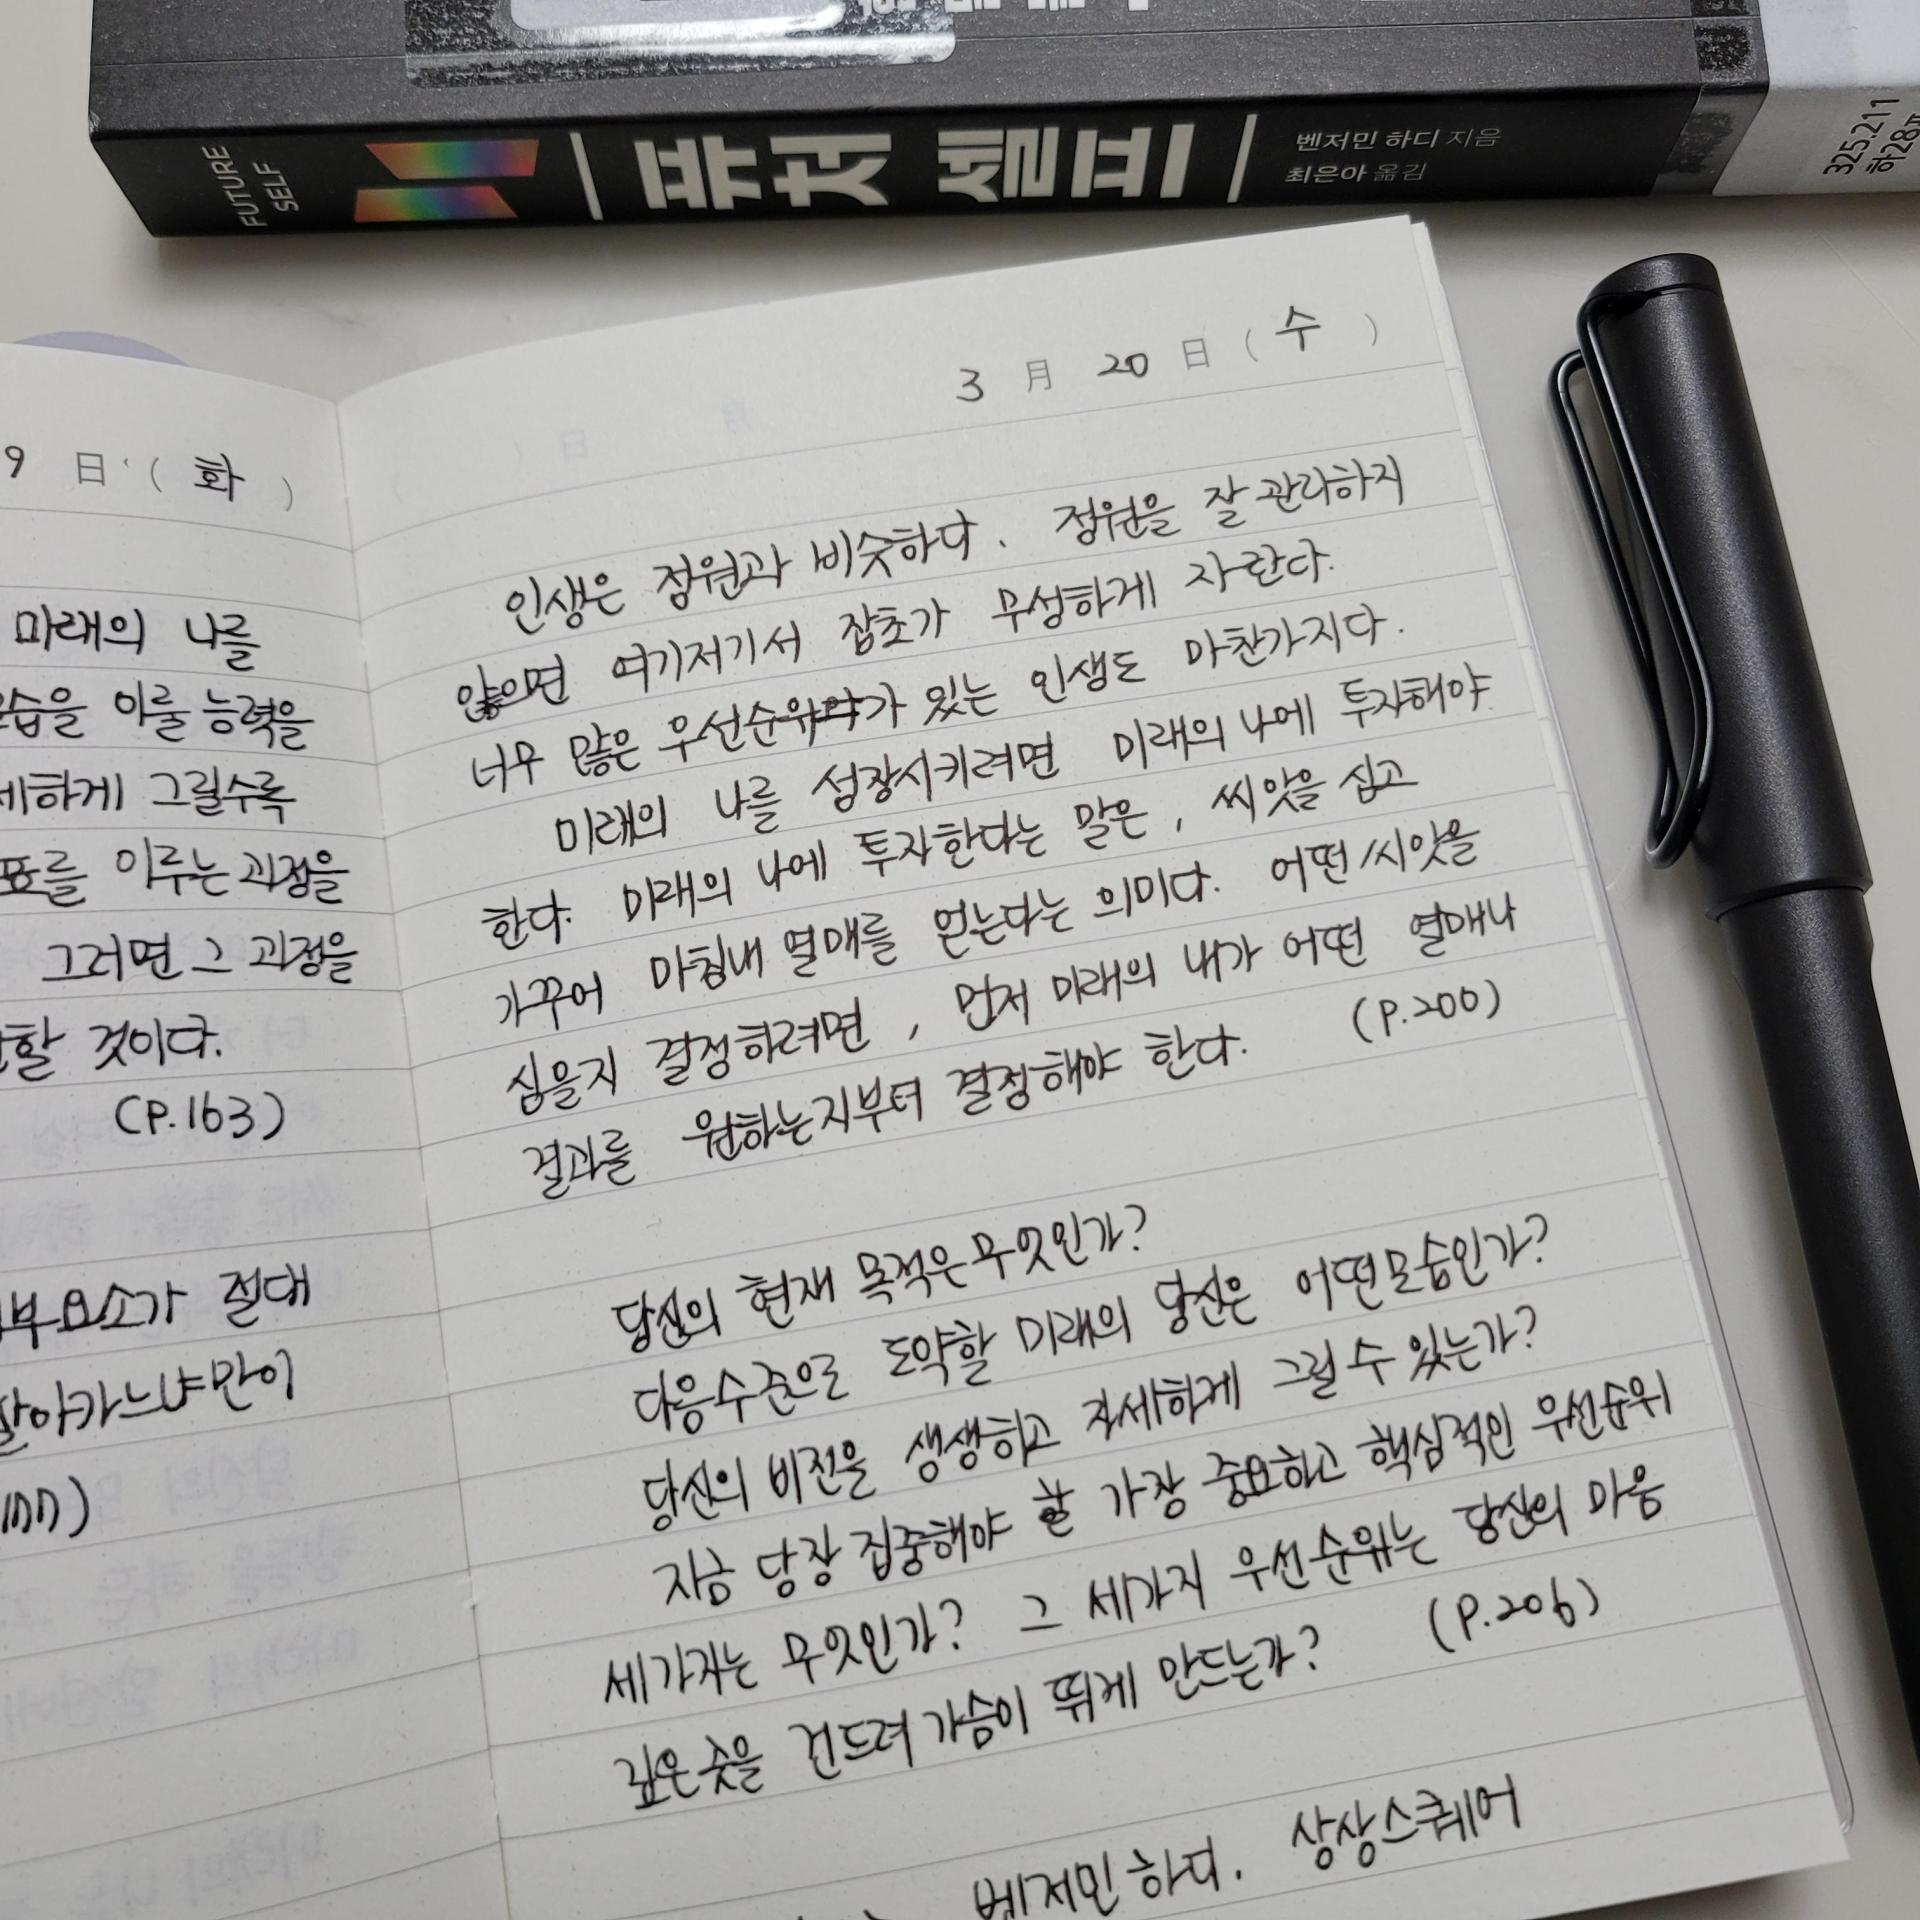 FUTURE
SELF
퓨처 셀프
벤저민 하디 지음
최은아 옮김
325.211
하28ㅍ
9 日 ( 화 )
미래의 나를
습을 이룰 능력을
세하게 그릴수록
표를 이루는 과정을
그러면 그 과정을
할 것이다.
(P.163)
부요소가 절대
살아가느냐만이
3 月 20 日 ( 수 )
인생은 정원과 비슷하다. 정원을 잘 관리하지
않으면 여기저기서 잡초가 무성하게 자란다.
너무 많은 우선순위가 있는 인생도 마찬가지다.
미래의 나를 성장시키려면 미래의 나에 투자해야
한다. 미래의 나에 투자한다는 말은, 씨앗을 심고
가꾸어 마침내 열매를 얻는다는 의미다. 어떤 씨앗을
심을지 결정하려면, 먼저 미래의 내가 어떤 열매나
결과를 원하는지부터 결정해야 한다. (P.200)
당신의 현재 목적은 무엇인가?
다음수준으로 도약할 미래의 당신은 어떤모습인가?
당신의 비전을 생생하고 자세하게 그릴 수 있는가?
지금 당장 집중해야 할 가장 중요하고 핵심적인 우선순위
세가지는 무엇인가? 그 세가지 우선순위는 당신의 마음
깊은 곳을 건드려 가슴이 뛰게 만드는가? (P.206)
벤저민 하디. 상상스퀘어